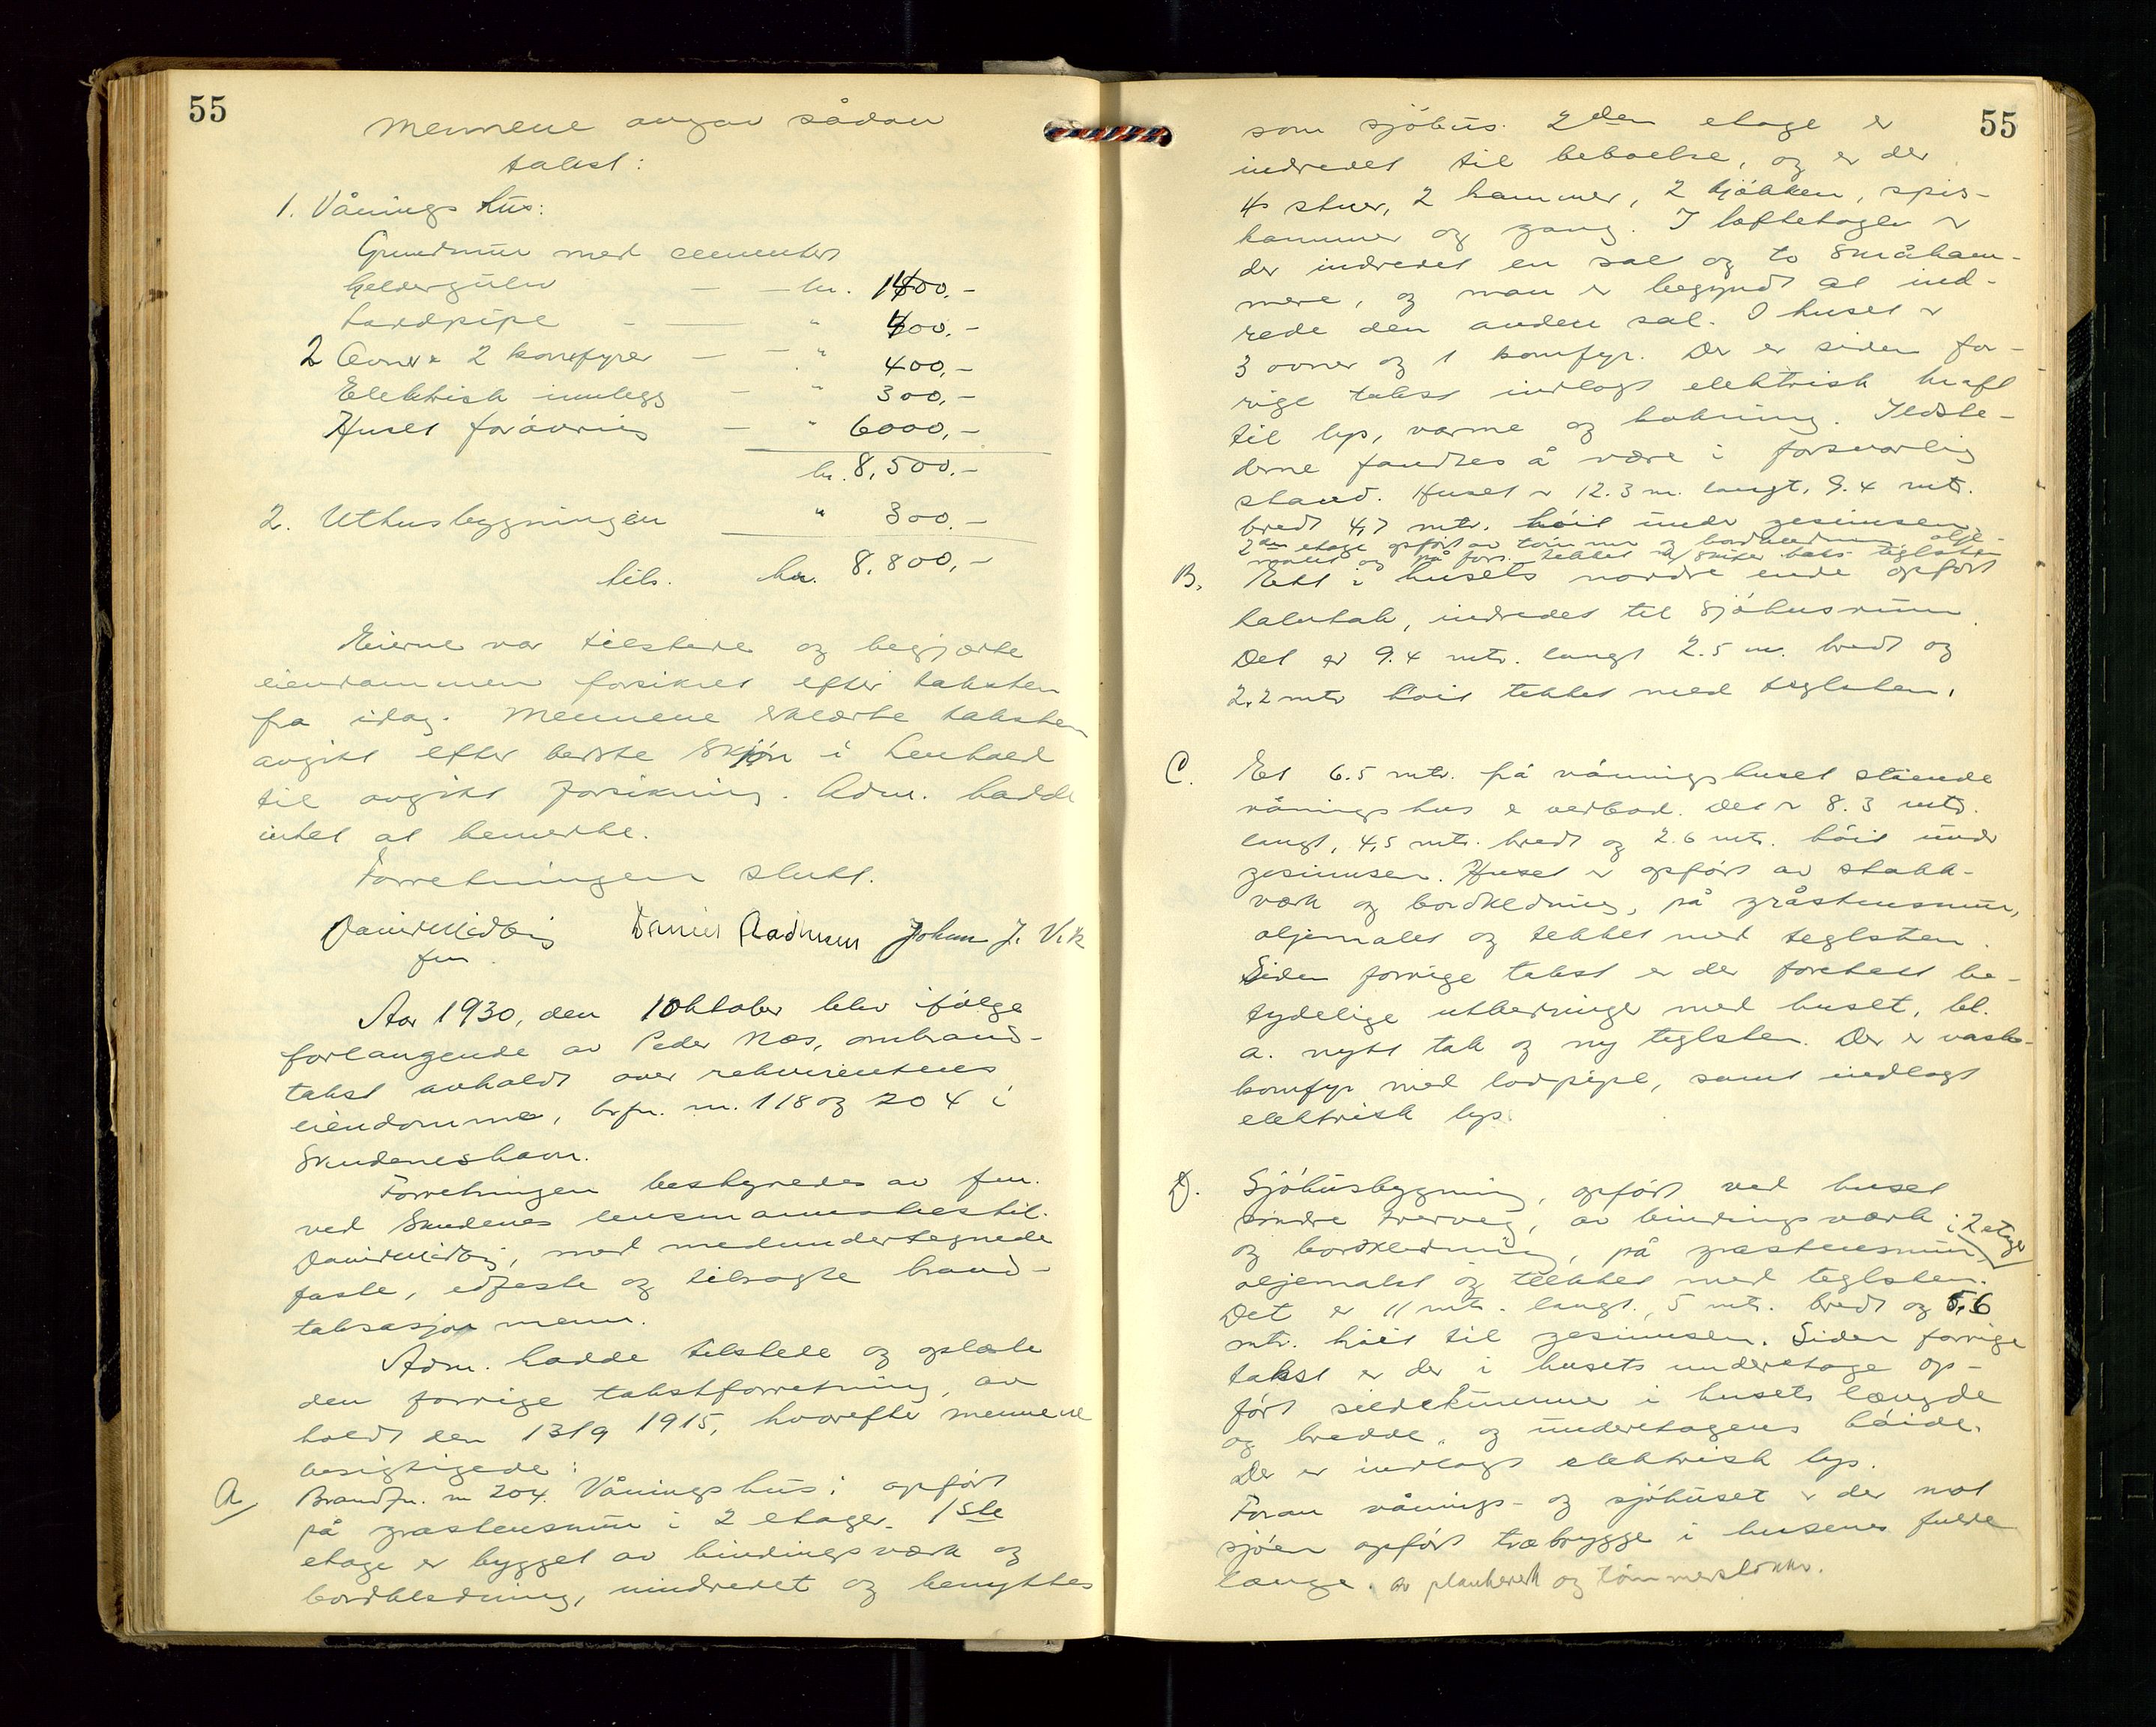 55
Mennene avgav sådan
takst:
1. Vånings hus:
Grundmur med cementert
kjeldergulv — — kr. 1400,-
Lodpipe — — " 400,-
2 Ovner & 2 komfyrer — — " 400,-
Elektrisk innlegg — " 300,-
Huset forøvrig — " 6000,-
kr. 8,500,-
2. Uthusbygningen " 300,-
tils. kr. 8.800,-
Eierne var tilstede og begjærte
eiendommen forsikret efter taksten
fra idag. Mennene erklærte taksten
avgitt efter bedste skjøn i henhold
til avgitt forsikring. Adm. hadde
intet at bemerke.
Forretningen slutt.
David Midbøe Daniel Rasmussen Johan J. Vik
fm.
Aar 1930, den 1 Oktober blev ifølge
forlangende av Peder Næs, ombrand-
takst avholdt over rekvirentens
eiendomme, brfr. nr. 118 og 204 i
Skudeneshavn.
Forretningen bestyredes av fm.
ved Skudenes lensmannsbestil.
David Midbøe, med medundertegnede
faste, edfeste og tilsagte brand-
taksasjonsmenn.
Adm. hadde tilstede og oplæste
den forrige takstforretning, av
holdt den 13/9 1915, hvorefter mennene
besigtigede:
A/ Brandfr. nr 204. Våningshus: opført
på gråstensmur i 2 etager. 1ste
etage er bygget av bindingsverk og
bordkledning, uindredet og benyttes
55
som sjøhus. 2den etage er
indredet til beboelse, og er der
4 stuer, 2 kammer, 2 kjøkken, spis-
kammer og gang. I loftetagen er
der indredet en sal og to småkam-
mere, og man er begyndt at ind-
rede den anden sal. I huset er
3 ovner og 1 komfyr. Der er siden for-
rige takst indlagt elektrisk kraft
til lys, varme og kokning. Ildste-
derne fandtes å være i forsvarlig
stand. Huset er 12.3 m. langt, 9.4 mtr.
bredt 4,7 mtr. høit under gesimsen,
2den etage opført av tømmer og bordkledning, olje-
malet og på fors. tekket m/ skifer baks. teglsten
B. Ett i husets nordre ende opført
halvtak, indredet til sjøhusrum.
Det er 9.4 mtr. langt 2.5 m. bredt og
2.2 mtr høit tekket med teglsten.
C. Et 6.5 mtr. frå våningshuset stående
vånings hus & vedbod. Det er 8.3 mtr.
langt, 4,5 mtr. bredt og 2.6 mtr. høit under
gesimsen. Huset er opført av stakk-
verk og bordkledning, på gråstensmur,
oljemalet og tekket med teglsten.
Siden forrige takst er der foretatt be-
tydelige utbedringer med huset, bl.
a. nytt tak og ny teglsten. Der er vaske-
komfyr med lodpipe, samt indlagt
elektrisk lys.
D. Sjøhusbygning, opført ved huset
søndre tverveg, av bindingsverk i 2 etager
og bordkledning, på gråstensmur,
oljemalet og tekket med teglsten.
Det er 11 mtr. langt, 5 mtr. bredt og 5,6
mtr. høit til gesimsen. Siden forrige
takst er der i husets underetage op-
ført sildekummer i husets længde
og bredde, og underetagens høide.
Der er indlagt elektrisk lys.
Foran vånings- og sjøhuset er der mot
sjøen opført træbrygge i husenes fulde
længe. av plankeverk og tømmerstokker.